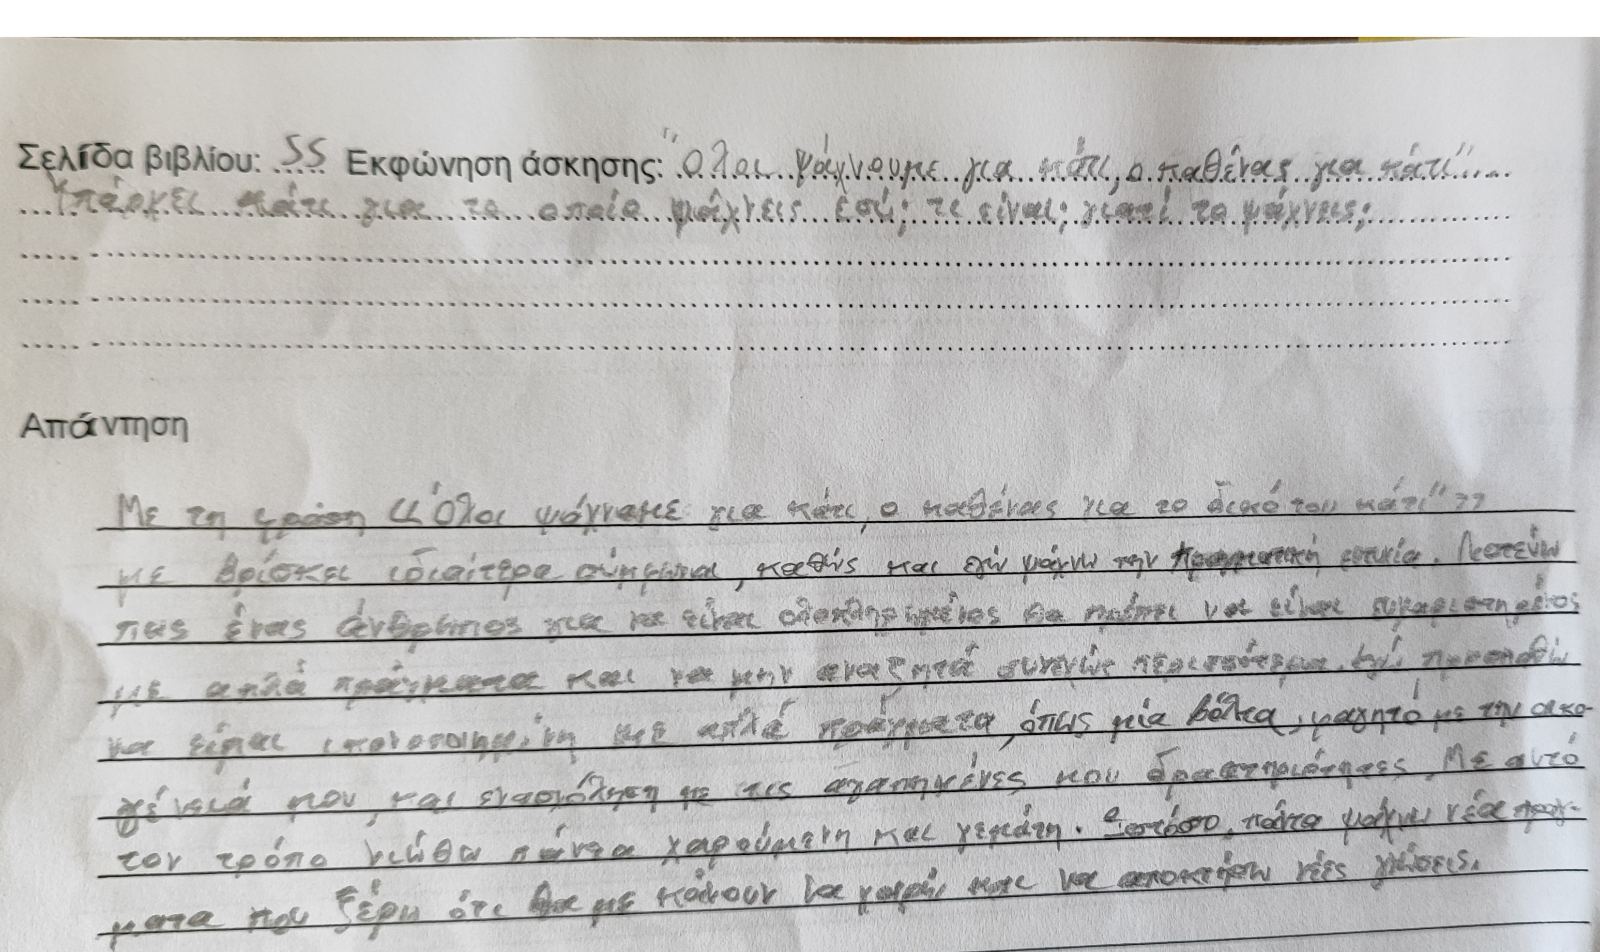 Σελίδα βιβλίου: 55 Εκφώνηση άσκησης: "Όλοι ψάχνουμε για κάτι, ο καθένας για κάτι"
Υπάρχει κάτι για το οποίο ψάχνεις εσύ; τι είναι; γιατί το ψάχνεις;
Απάντηση
Με τη φράση "Όλοι ψάχναμε για κάτι, ο καθένας για το δικό του κάτι"
με βρίσκει ιδιαίτερα σύμφωνη, καθώς και εγώ ψάχνω την πραγματική ευτυχία. Πιστεύω
πως ένας άνθρωπος για να είναι ολοκληρωμένος θα πρέπει να είναι ευχαριστημένος
με απλά πράγματα και να μην αναζητά συνεχώς περισσότερα. Εγώ προσπαθώ
να είμαι ικανοποιημένη με απλά πράγματα, όπως μία βόλτα, φαγητό με την οικο-
γένειά μου και ενασχόληση με τις αγαπημένες μου δραστηριότητες. Με αυτό
τον τρόπο νιώθω πάντα χαρούμενη και γεμάτη. Ωστόσο, πάντα ψάχνω νέα πράγ-
ματα που ξέρω ότι θα με κάνουν να χαρώ και να αποκτήσω νέες γνώσεις.